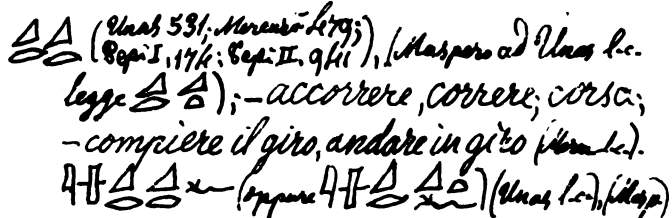 (Unas 531; Merenrâ 479;
Pepi I, 174; Pepi II, 941), (Maspero ad Unas l.c.
legge ); – accorrere, correre; corsa;
– compiere il giro, andare in giro ( l.c.).
(oppure ) (Unas l.c.), (Masp)